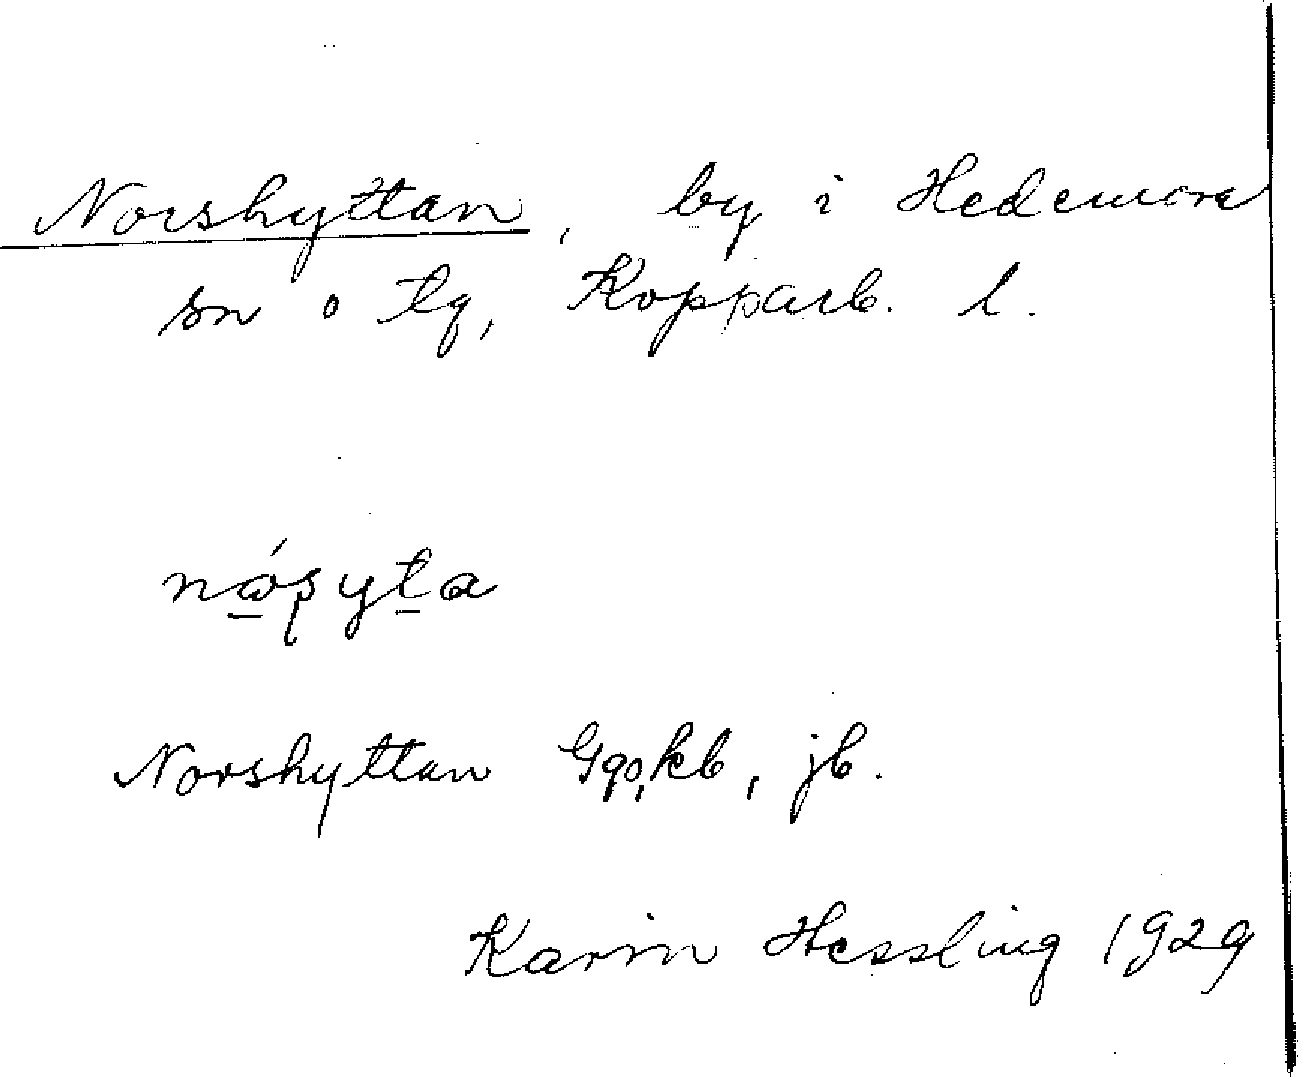 Norshyttan, by i Hedemora
sn o tg, Kopparb. l.
Norshyttan Gqo,kb, jb.
Karin Hessling 1929